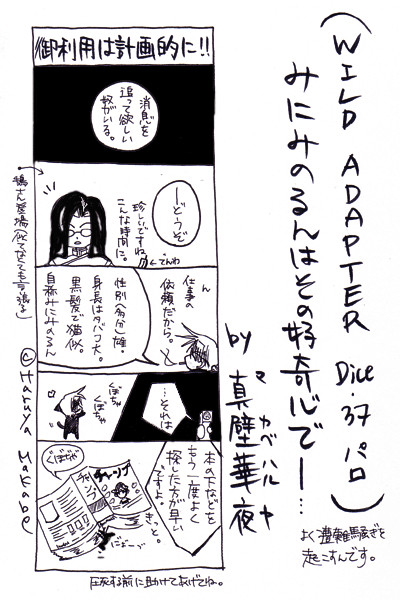 (WILD ADAPTER Dice.37 パロ)
みにみのるんはその好奇心でー…
by 真壁華夜
マカベハルヤ
よく遭難騒ぎを
起こすんです。
御利用は計画的に!!
消息を
追って欲しい
奴がいる。
—どうぞ
珍しいですね
こんな時間に。
でんわ
鵠さん登場(似てなくても言い張る)
ん
仕事の
依頼だから。
性別(多分)雄。
身長はタバコ大。
黒髪で猫似。
自称みにみのるん
…それは
くぼちゃ
くぼちゃ
本の下などを
もう一度よく
探した方が早い
ですよ。
きっと。
くぼちゃ
チャンプ
チャンプ
にょ〜
圧死する前に助けてあげてね。
©Haruya Makabe